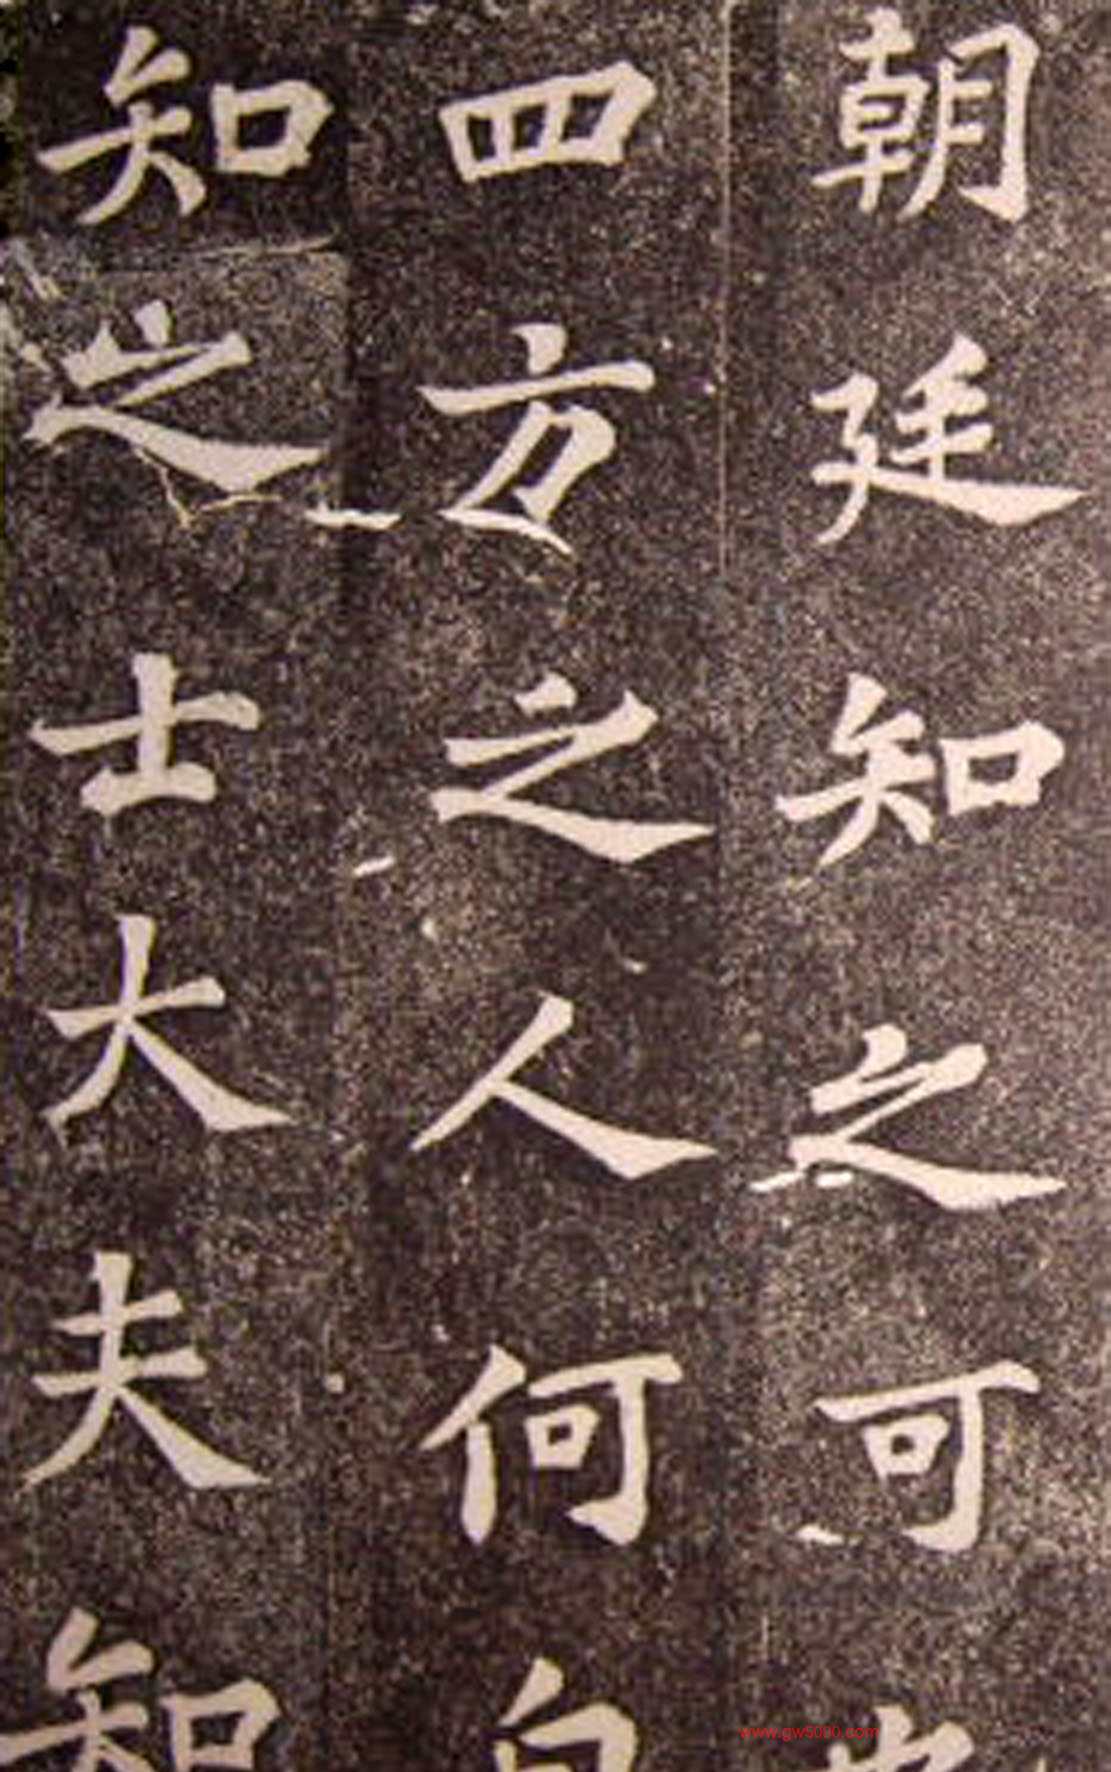 朝廷知之可
四方之人何
知之士大夫知
www.gw5000.com